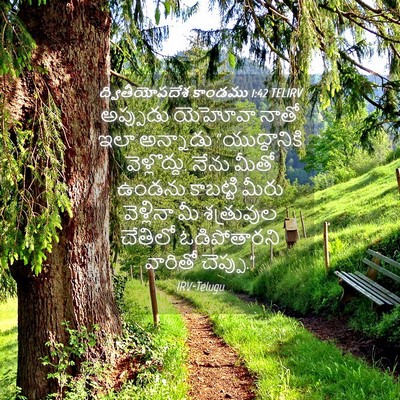 ద్వితీయోపదేశ కాండము 1:42 TELIRV
అప్పుడు యెహోవా నాతో
ఇలా అన్నాడు “యుద్ధానికి
వెళ్లొద్దు. నేను మీతో
ఉండను కాబట్టి మీరు
వెళ్లినా మీ శత్రువుల
చేతిలో ఓడిపోతారని
వారితో చెప్పు.”
IRV-Telugu